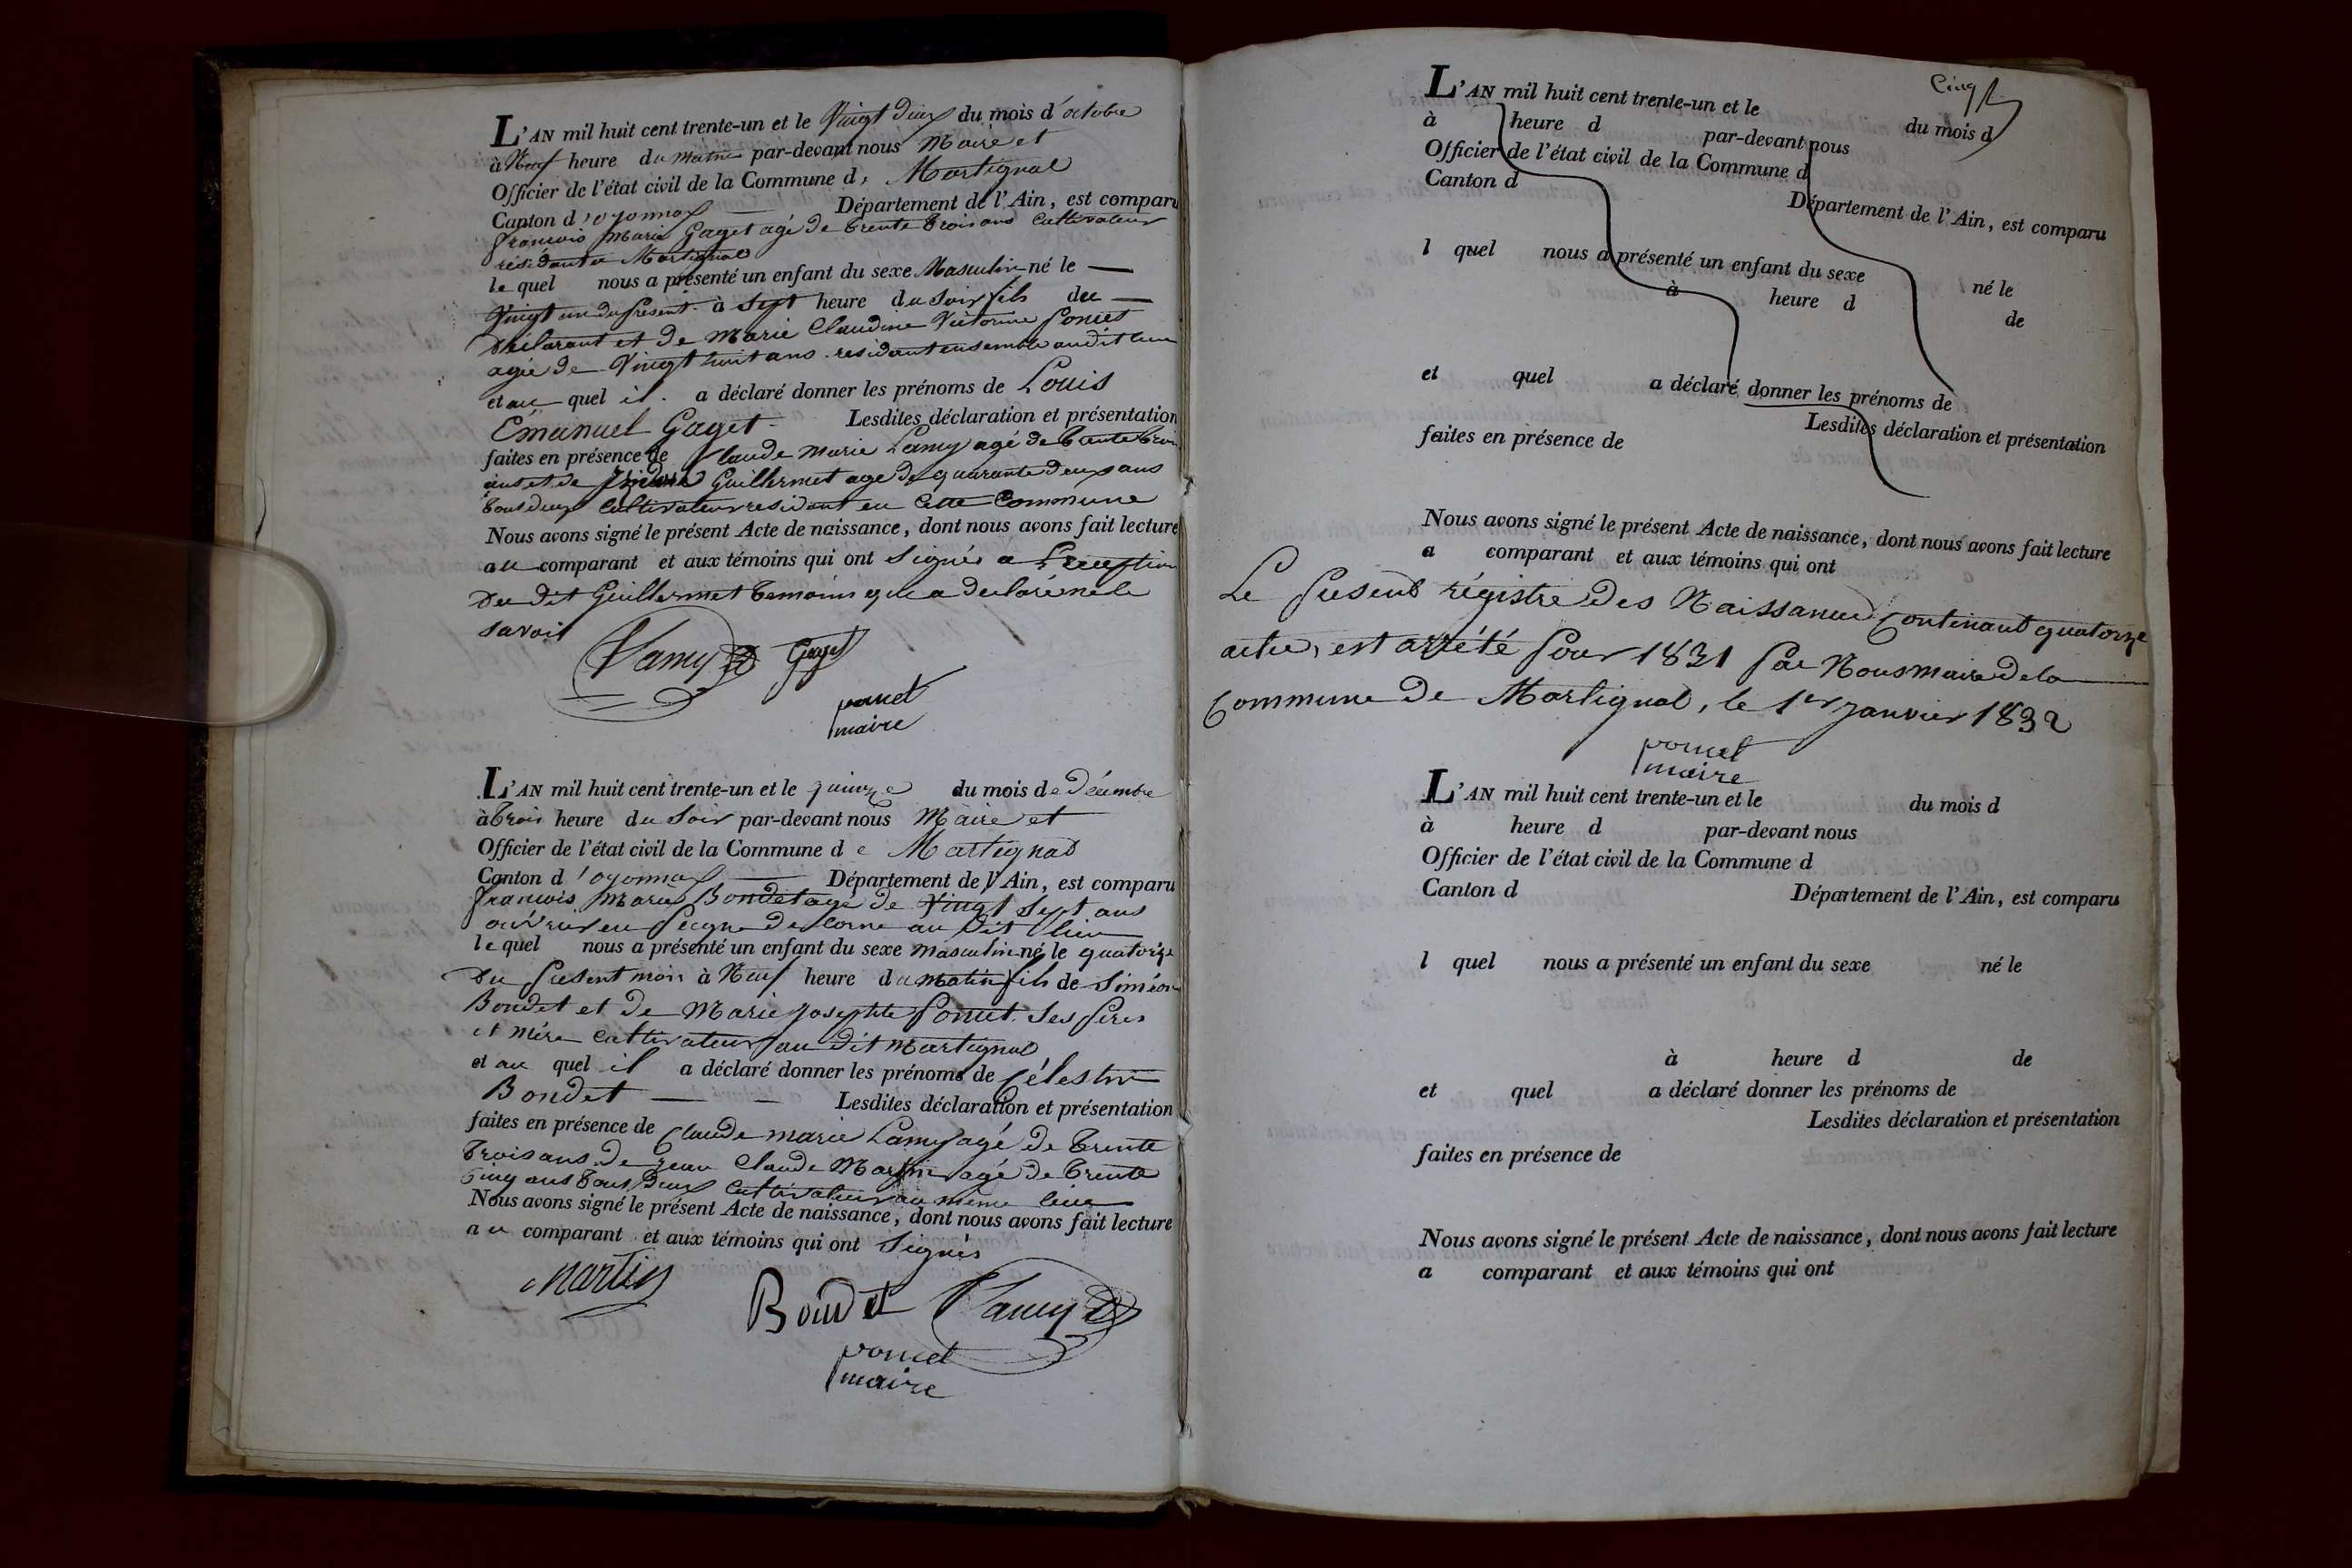 L'AN mil huit cent trente-un et le Vingt deux du mois d'octobre
à Neuf heure du matin par-devant nous Maire et
Officier de l'état civil de la Commune de Martignat
Canton d'oyonnax — Département de l'Ain, est comparu
françois Marie Gaget agé de trente trois ans Cultivateur
résidant a Martignat
le quel nous a présenté un enfant du sexe Masculin né le —
Vingt un du présent à Sept heure du Soir fils du —
Déclarant et de Marie Claudine Victorine Poncet
agée de Vingt huit ans residant ensemble audit lieu
et au quel il a déclaré donner les prénoms de Louis
Emanuel Gaget - Lesdites déclaration et présentation
faites en présence de Claude Marie Lamy agé de trente trois
ans et de Guillermet age de quarante deux ans
tous deux Cultivateur residant en Cette Commune
Nous avons signé le présent Acte de naissance, dont nous avons fait lecture
au comparant et aux témoins qui ont Signés a L'exeption
Du dit Guillermet temoins qui a declaré ne le
savoir
Lamy Gaget
poncet
maire
L'AN mil huit cent trente-un et le quinze du mois de Décembre
à trois heure du Soir par-devant nous Maire et
Officier de l'état civil de la Commune de Martignat
Canton d'oyonnax — Département de l'Ain, est comparu
françois Marie Bondet agé de Vingt Sept ans
ouvrier en Peigne de Corne au Dit lieu
le quel nous a présenté un enfant du sexe Masculin né le quatorze
Du présent mois à Neuf heure du matin fils de Siméon
Bondet et de Marie Josephte Poncet Ses Peres
et Mére Cultivateur au dit Martignat
et au quel il a déclaré donner les prénoms de Célestin
Bondet — — Lesdites déclaration et présentation
faites en présence de Claude marie Lamy agé de trente
trois ans de Jean Claude Martin agé de trente
Cinq ans tous Deux Cultivateur au même lieu
Nous avons signé le présent Acte de naissance, dont nous avons fait lecture
au comparant et aux témoins qui ont Signés
Martin
Bondet Lamy
poncet
maire
Cinq
L'AN mil huit cent trente-un et le du mois d
à heure d par-devant nous
Officier de l'état civil de la Commune d
Canton d Département de l'Ain, est comparu
l quel nous a présenté un enfant du sexe né le
à heure d de
et quel a déclaré donner les prénoms de
Lesdites déclaration et présentation
faites en présence de
Nous avons signé le présent Acte de naissance, dont nous avons fait lecture
a comparant et aux témoins qui ont
Le Présent régistre des Naissances Contenant quatorze
actes, est arrété Pour 1831 Par Nous maire de la
Commune de Martignat, le 1er Janvier 1832
poncet
maire
L'AN mil huit cent trente-un et le du mois d
à heure d par-devant nous
Officier de l'état civil de la Commune d
Canton d Département de l'Ain, est comparu
l quel nous a présenté un enfant du sexe né le
à heure d de
et quel a déclaré donner les prénoms de
Lesdites déclaration et présentation
faites en présence de
Nous avons signé le présent Acte de naissance, dont nous avons fait lecture
a comparant et aux témoins qui ont